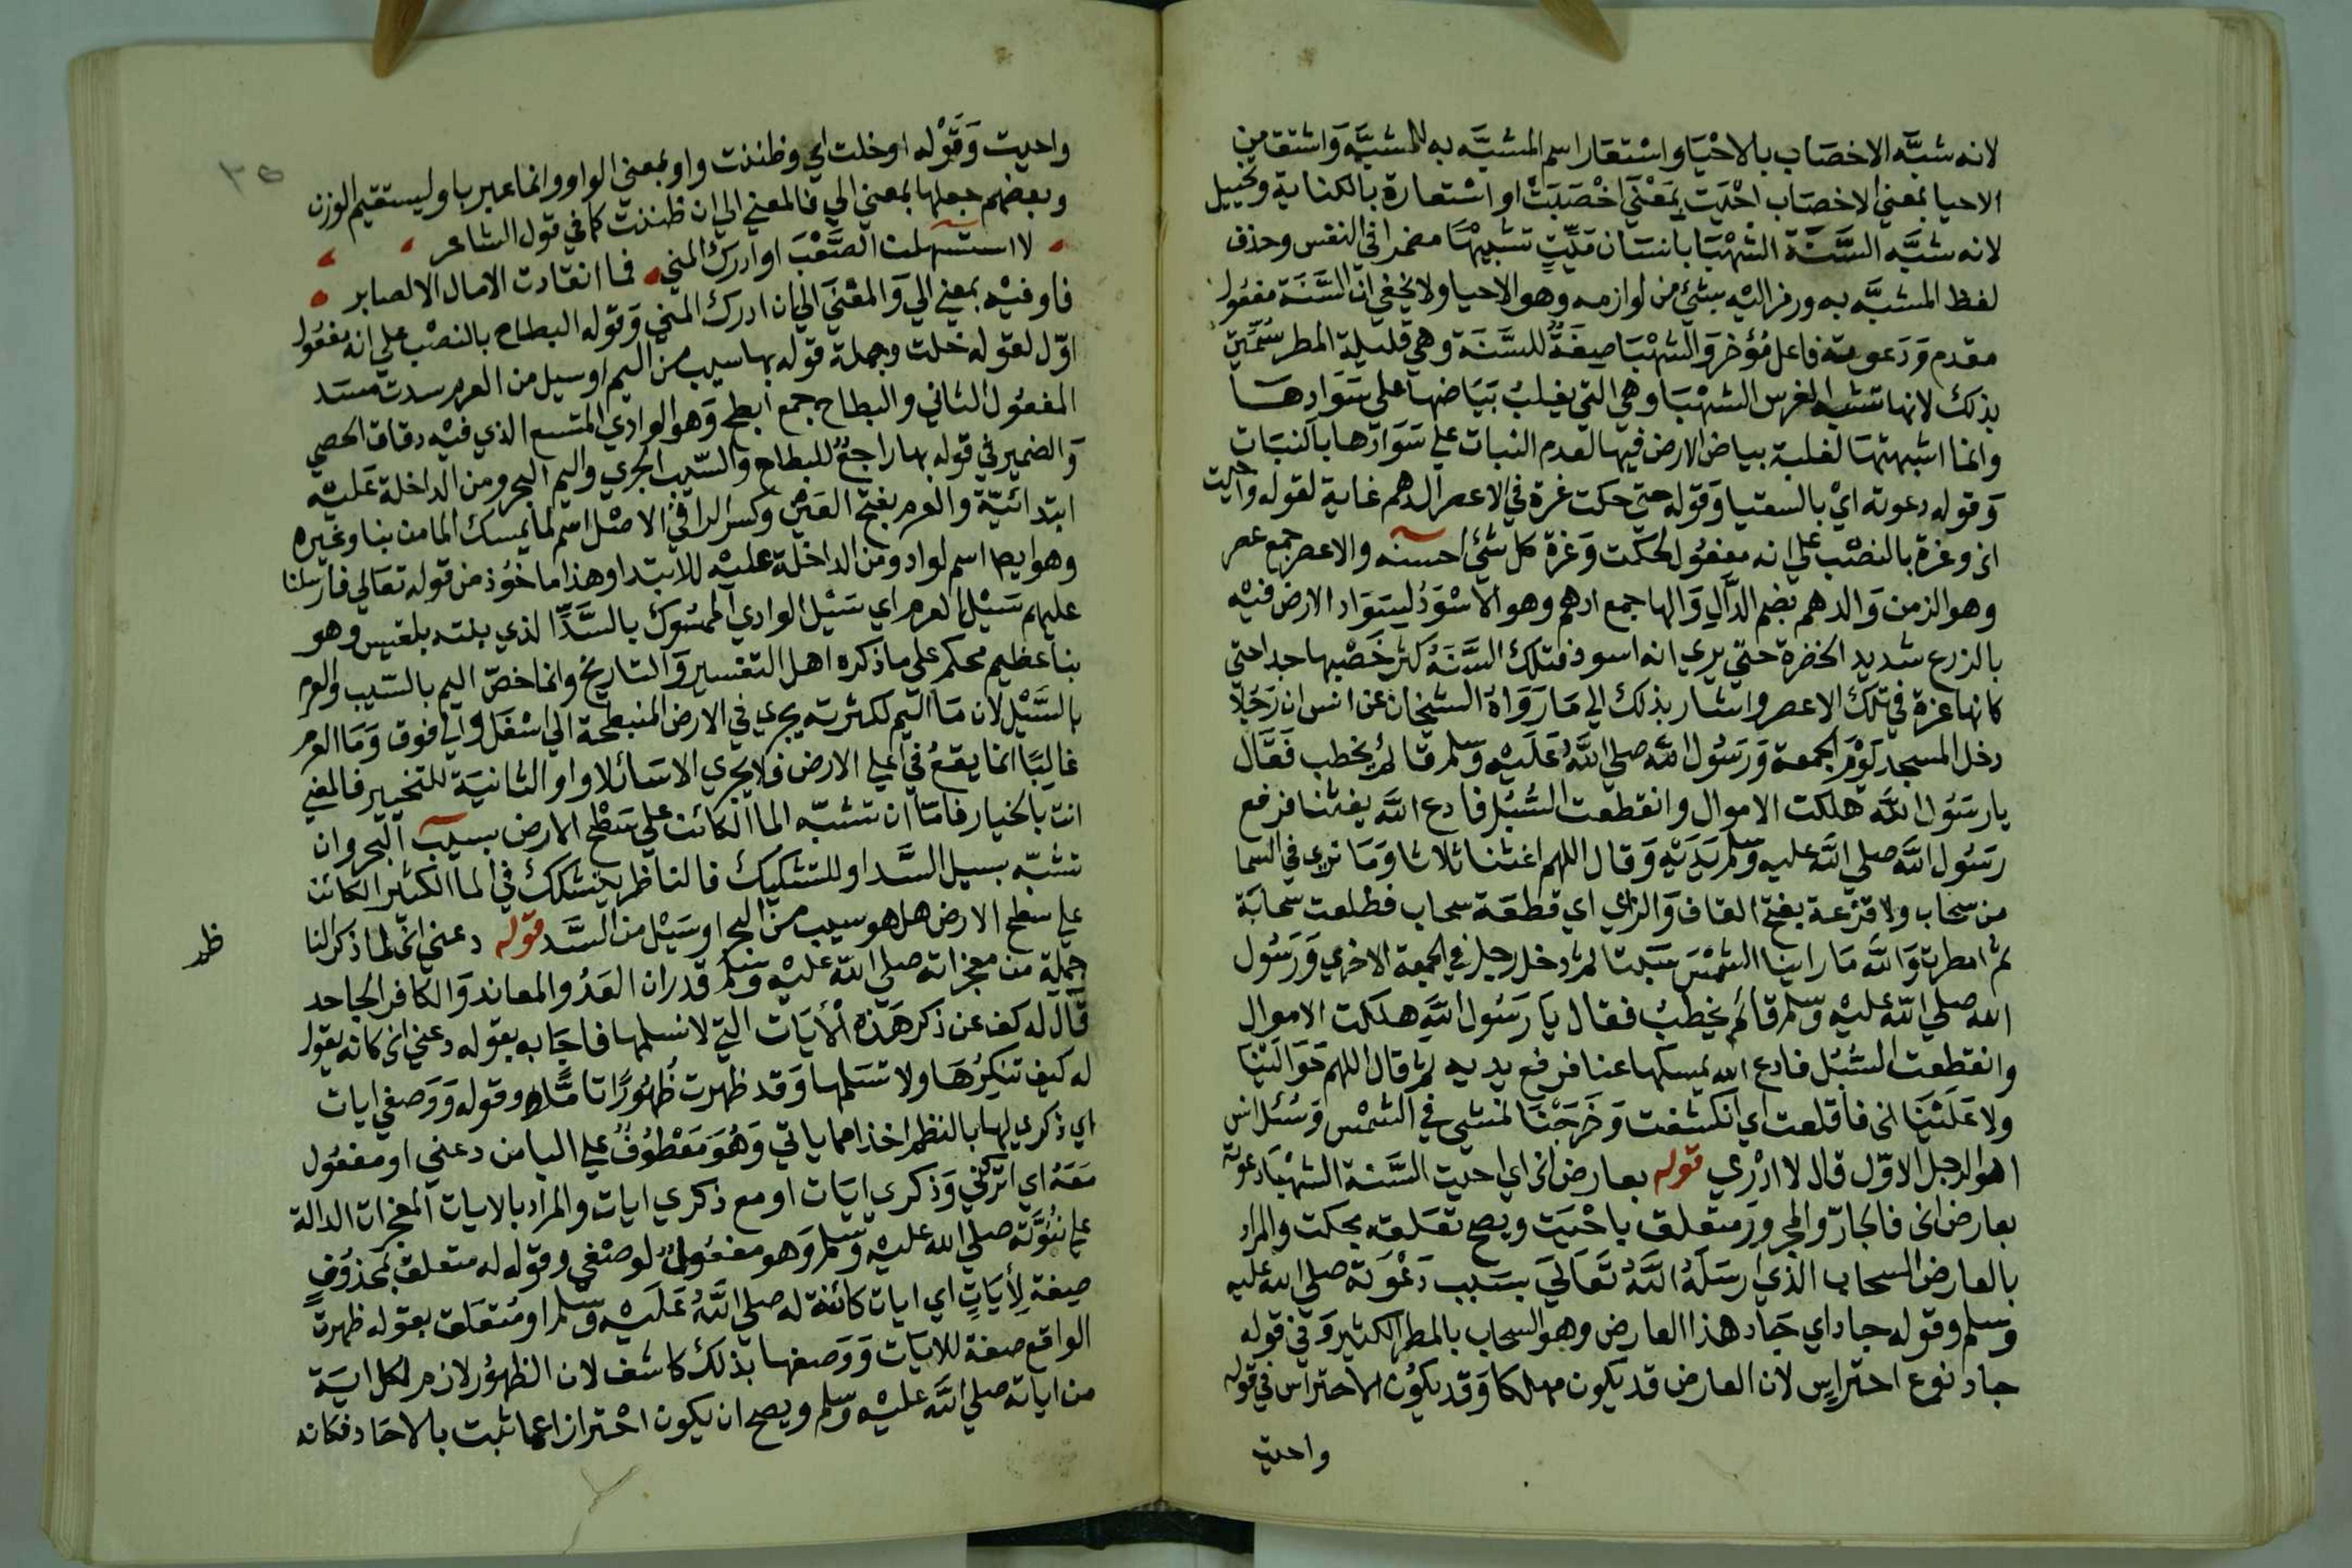 لانه شبَّه الاخصَاب بالاحْيَا واسْتعَار اسم المشبَّه به للمشبَّه وَاشتق من
الاحيا بمعني الاخصَاب احْيَت بمَعْنَي اخْصَبَتْ او اسْتعارة بالكناية وتخييل
لانه شبَّه السَّنَة الشهْبَا بانسَان مَيِّتٍ تشبيهًا مضمرا في النفس وحذف
لفظ المشبَّه به ورمز اليْه بشئ من لوازمه وهو الاحيا ولا يخفي ان السَّنَة مفعُول
مقدم وَدَعوته فاعل مُؤخر وَالشهْبَا صيغَةٌ للسَّنَة وهي قليلة المطر سُمّيَت
بذلك لانها تشبه الفرس الشهْبَا وهي التي يغلبُ بيَاضها على سَوَادها
وانما اشبهتهَا لغلبة بياض الارض فيها لعدم النبات علي سَوَادها بالنبَات
وَقوله دعوته ايْ بالسقيا وَقوله حتي حكت غرة في الاعصر الدهم غاية لقوله واحيت
الخ وغرة بالنصْب علي انه مفعُول لحكت وَغرة كل شئ احسنه والاعصر جمع عصر
وهو الزمن وَالدهم بضم الدَّالِ وَالها جمع ادهم وهو الاسْوَدُ لسَوَاد الارض فيْه
بالزرع شديد الخضرة حتي يري انه اسود فتلك السَّنَةُ كثر خصْبها جدا حتي
كانها غرة في تلك الاعصر واشار بذلك الي مَا رَوَاهُ الشيخان عن انس ان رَجُلًا
دخل المسجد يَوْمَ الجمعة وَرَسُول اللَّه صلي اللَّهُ عَلَيْه وَسَلم قائم يخطب فقَال
يا رسَوُل اللَّه هلكت الاموال وانقطعت السُّبُل فادع اللَّه يغثنا فرفع
رسُول اللَّه صلي اللَّه عليه وَسَلم يَدَيْهِ وَقال اللهم اغثنا ثلاثا وَمَا نري في السما
من سحَاب ولا قزعة بفتح القاف وَالزاي اي قطعَة سحاب فطلعت سحابَة
ثم امطرت وَاللَّه مَا راينا الشمْسَ سَبتا ثم دخل رجل في الجمعة الاخري وَرَسُول
الله صلي اللَّه عليْه وسَلم قائم يخطبُ فقال يَا رَسُول اللَّه هلكت الاموال
وانقطعت السُّبُل فادع الله يمسكها عنا فرفع يديه ثم قال اللهم حَوَالَيْنَا
ولا عَلَيْنَا الخ فاقلعت اي انكشفت وَخَرَجْنَا نمشي في الشمْس وَسُئل انس
اهو الرجل الاوّل قال لا ادْري قوله بعارض الخ اي احيت السَّنة الشهْبَا دعوته
بعارض الخ فالجارّ والمجرورُ متعلق باحْيَت ويصح تعَلقه بحكت والمراد
بالعارض السحاب الذي ارسَلَهُ اللَّهُ تعَالَي بسَبب دَعْوَته صلي الله عليه
وَسلم وقوله جاد اي جَاد هذا العارض وهو السحاب بالمطر الكثير وَفي قوله
جاد نوع احتراسٍ لان العارض قد يكون مهلكا وَقد يكوُن الاحتراس في قوله
واحيت
واحييت وَقَوْله او خلت اي وظننت واو بمعني الواو وانما عبر باو ليستقيم الوزن
وبعضهم جعلها بمعني الي فالمعني الي ان ظننت كما في قول الشاعر
لا استسهلن الصَّعْبَ او ادرك المني فما انقادت الامال الا لصابر
فاو فيْه بمعني الي وَالمعْنَي الي ان ادرك المني وَقوله البطاح بالنصْب علي انه مفعُول
اوّل لقوله خلت وجملة قوله بها سيب من اليم او سيل من العرم سدت مسَد
المفعُول الثاني والبطاح جمع ابطح وَهو الوادي المتسع الذي فيْه دقاق الحصي
وَالضمير في قوله بها راجعٌ للبطاح والسَّيب الجري واليم البحر ومن الداخلة عَليْه
ابتدائيَّة والعرم بفتح العَين وكسر الرا في الاصْل اسم لما يمسك الما من بنا وغيره
وهو ايضا اسم لواد ومن الداخلة عليْه للابتدا وهذا ماخوُذ من قوله تعَالي فارسلنا
عليهم سَيْل العرم اي سَيْل الوادي الممسُوك بالسَّدّ الذي بنته بلقيس وهو
بنا عظيم محكم علي ما ذكره اهل التفسير وَالتاريخ وانما خصّ اليم بالسَّيب والعرم
بالسَّيْل لان مَا اليم لكثرته يجري في الارض المنبطحة الي اسْفل والي فوق وَمَا العرم
غالبًا انما يقعُ في اعلي الارض فلا يجري الا سَائلا واو الثانيَة للتخيير فالمعني
انت بالخيار فامّا ان تشبّه الما الكائن علي سَطح الارض بسيب البحر وان
تشبّه بسيل السَّد او للتشكيك فالناظر يتشكك في الما الكثير الكائن
علي سطح الارض هل هو سيب من البحر او سَيْل من السَّد قوله دعني الخ لما ذكر لنا
جملة من معجزاته صلي اللَّه عليْه وَسَلم قدر ان العَدُو المعاند وَالكافر الجاحد
قال له كف عن ذكر هَذه الأيَات التي لا نسلمها فاجَابه بقوله دعني الخ كانه يقول
له كيف تنكِرُهَا ولا تسَلمها وَقد ظهرت ظُهُورًا تامًّا وقوله وَوَصفي ايات
اي ذكري لها بالنظم اخذا مما ياتي وَهُوَ مَعْطوُفٌ علي اليا من دعني او مفعُول
مَعَهُ اي اتركني وَذكري ايَات او مع ذكري ايات والمراد بالايات المعجزات الدالة
علي نبُوَّته صلي الله عليْه وَسَلم وَهو مفعُولٌ لوصْفي وقوله له متعلق بمحذوُفٍ
صيغة لأيَاتٍ اي ايات كائنة له صلي اللَّهُ عَلَيْه وَسَلم او مُتعَلق بقوله ظهرت
الواقع صفة للايَات وَوَصفها بذلك كاشف لان الظهوُر لازم لكل ايَة
من اياته صلي اللَّه عليْه وسَلم ويصح ان يكون احْترازا عما ثبت بالاحَاد فكانه